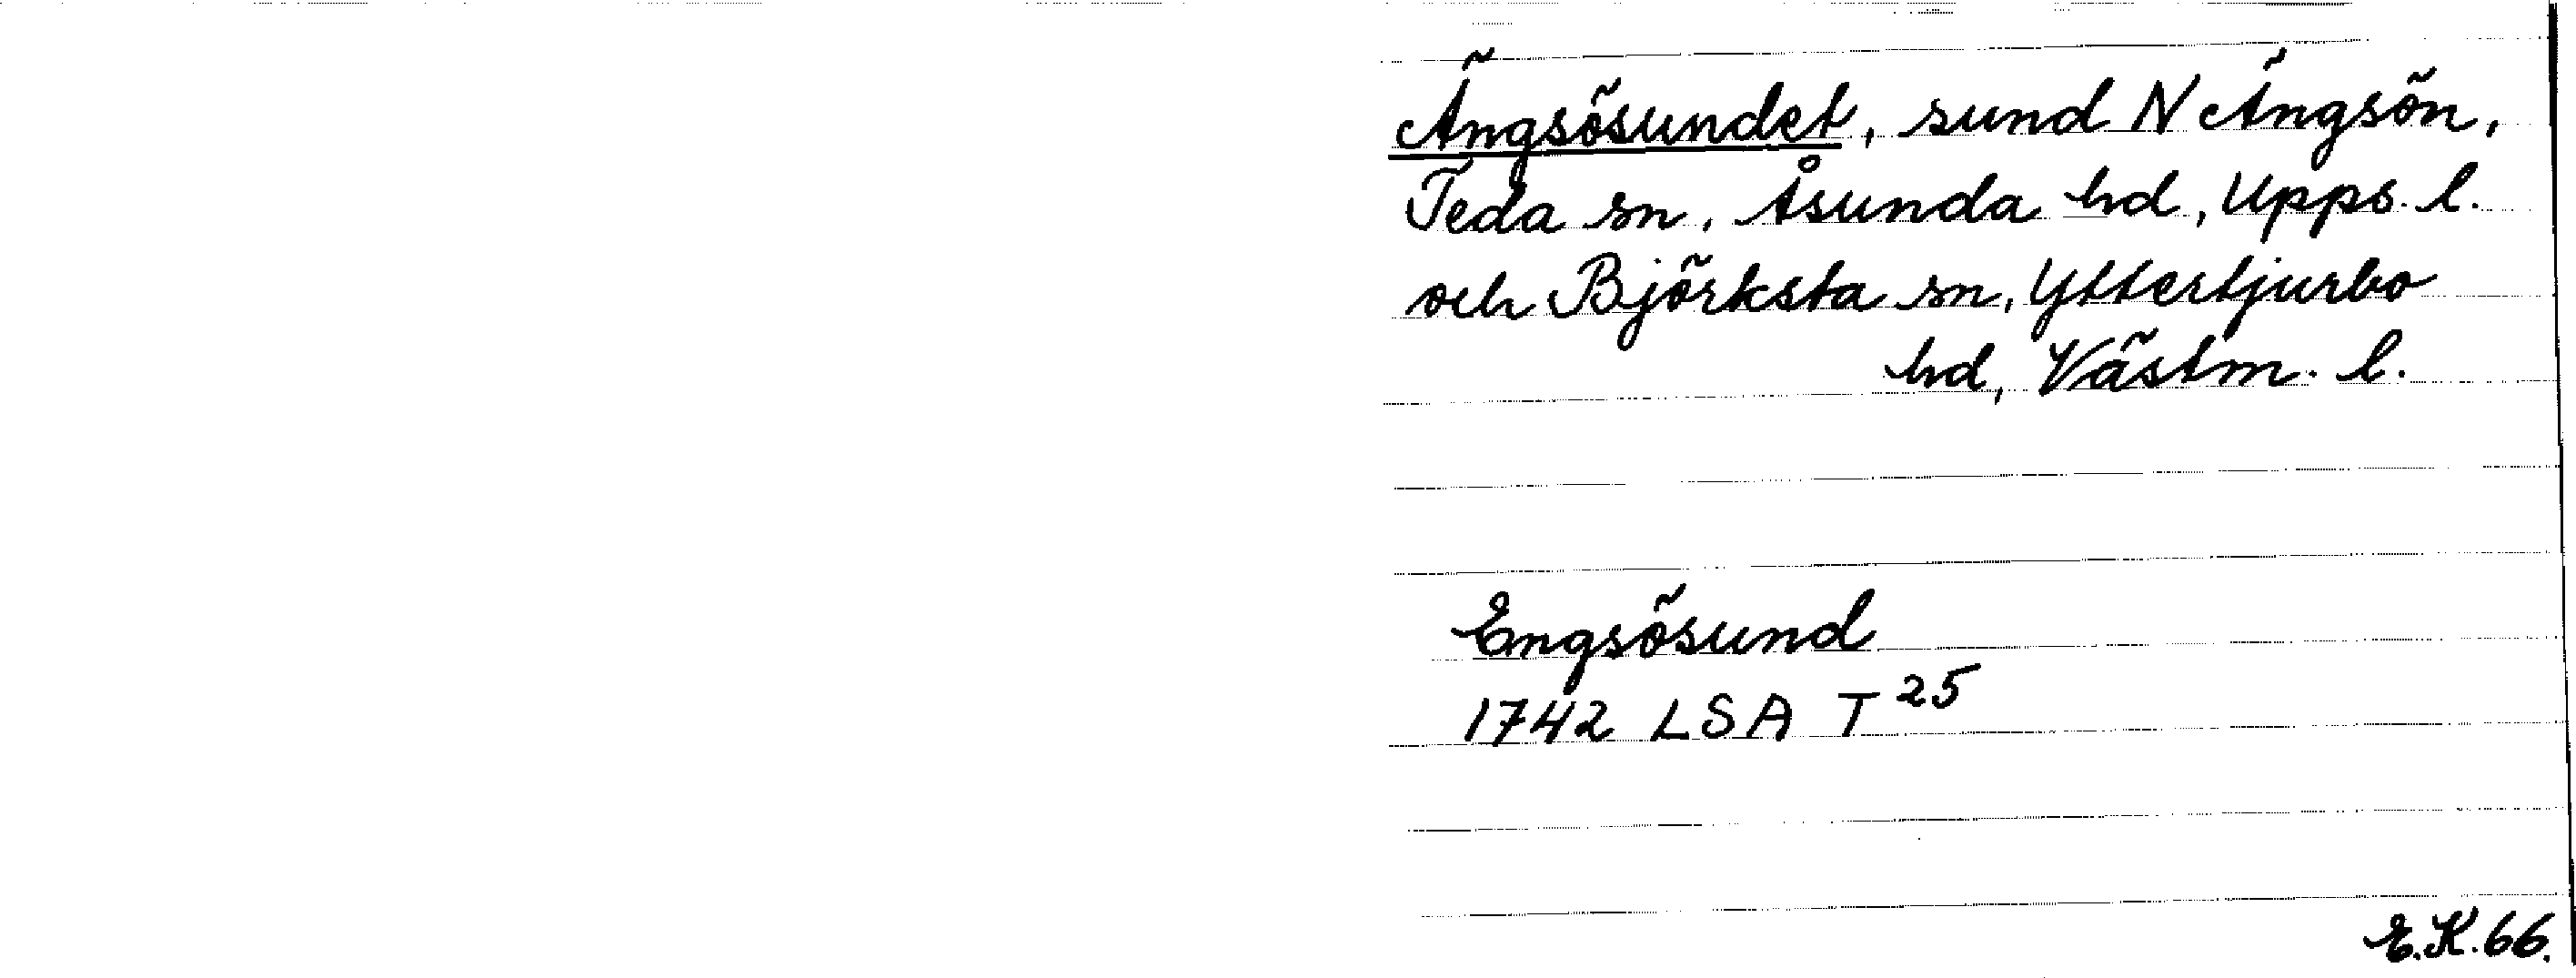 Ängsösundet, sund N Ängsön,
Teda sn, Åsunda hd, Upps. l.
och Björksta sn, Yttertjurbo
hd, Västm. l.
Engsösund
1742 LSA T 25
E.K. 66.